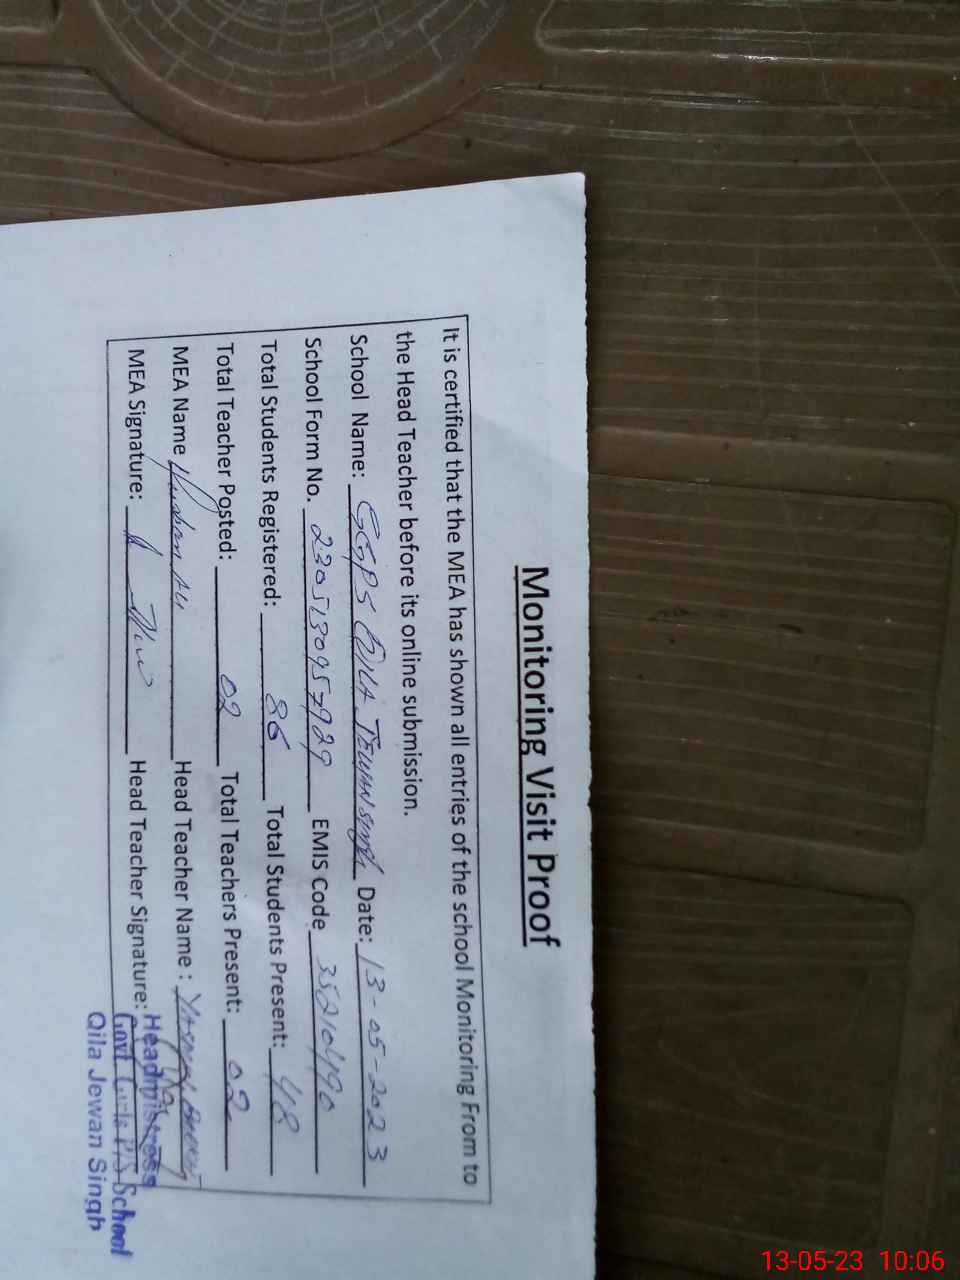 Monitoring Visit Proof
It is certified that the MEA has shown all entries of the school Monitoring From to
the Head Teacher before its online submission.
School Name: GGPS QILA JEWAN SINGH Date: 13-05-2023
School Form No. EMIS Code 35210490
Total Students Registered: 86 Total Students Present: 48
Total Teacher Posted: 02 Total Teachers Present: 02
MEA Name Ali Head Teacher Name :
MEA Signature: Head Teacher Signature:
Headmistress
Govt. Girls P/S School
Qila Jewan Singh
13-05-23 10:06